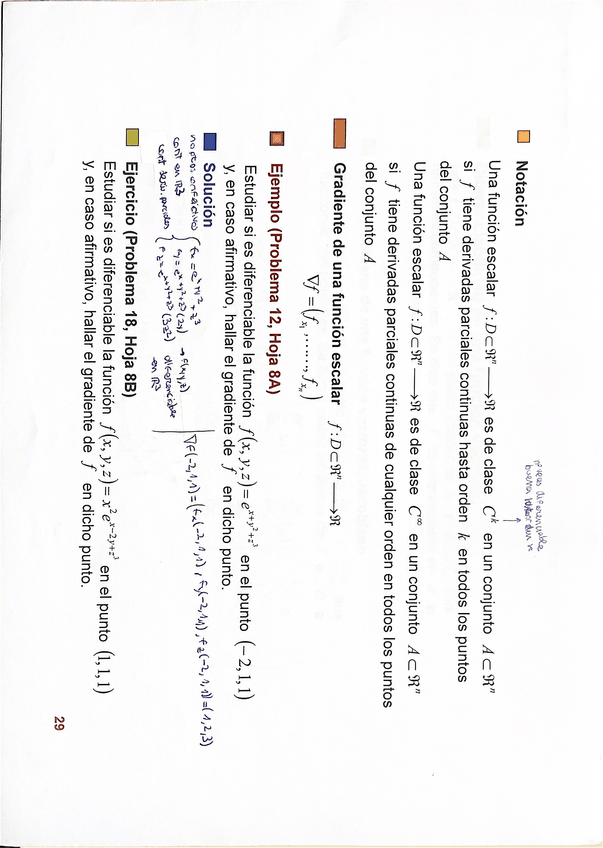 Notación
nº veces diferenciable
Una función escalar f : D ⊂ ℜⁿ ⟶ ℜ es de clase Cᵏ en un conjunto A ⊂ ℜⁿ
si f tiene derivadas parciales continuas hasta orden k en todos los puntos
del conjunto A
Una función escalar f : D ⊂ ℜⁿ ⟶ ℜ es de clase C^∞ en un conjunto A ⊂ ℜⁿ
si f tiene derivadas parciales continuas de cualquier orden en todos los puntos
del conjunto A
Gradiente de una función escalar f : D ⊂ ℜⁿ ⟶ ℜ
∇f = (f_{x₁}, ……, f_{xₙ})
Ejemplo (Problema 12, Hoja 8A)
Estudiar si es diferenciable la función f(x, y, z) = e^{x+y²+z³} en el punto (−2, 1, 1)
y, en caso afirmativo, hallar el gradiente de f en dicho punto.
Solución
∇f(-2,1,1) = (fx(-2,1,1), fy(-2,1,1), fz(-2,1,1)) = (1,2,3)
fx = e^{x+y²+z³}
cont en ℝ³
fy = e^{x+y²+z³}(2y) → f(x,y,z)
diferenciable
fz = e^{x+y²+z³}(3z²)
en ℝ³
Ejercicio (Problema 18, Hoja 8B)
Estudiar si es diferenciable la función f(x, y, z) = x² e^{x−2y+z³} en el punto (1, 1, 1)
y, en caso afirmativo, hallar el gradiente de f en dicho punto.
29